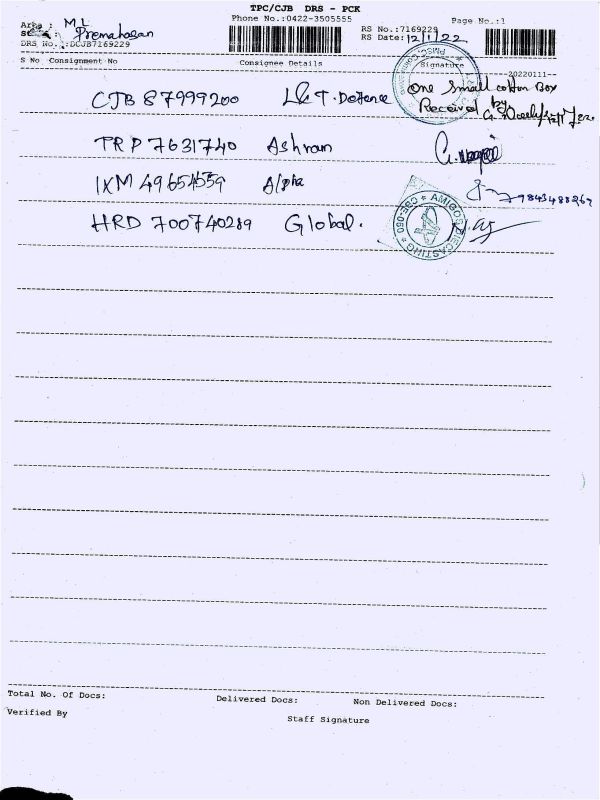 TPC/CJB DRS - PCK
Phone No.:0422-3505555
Page No.:1
Area : ML
Premahasan
RS No.:7169229
RS Date: 12/1/22
DRS No.:DCJB7169229
S No Consignment No Consignee Details Signature
--20220111--
CJB 87999200 L&T. Defence One Small cotton Box
Received by
TRP 7631740 Ashram
IXM 49654559 Alpha
HRD 700740289 Global.
AMIGOS DIECASTING
CBE-050
Total No. Of Docs: Delivered Docs: Non Delivered Docs:
Verified By Staff Signature